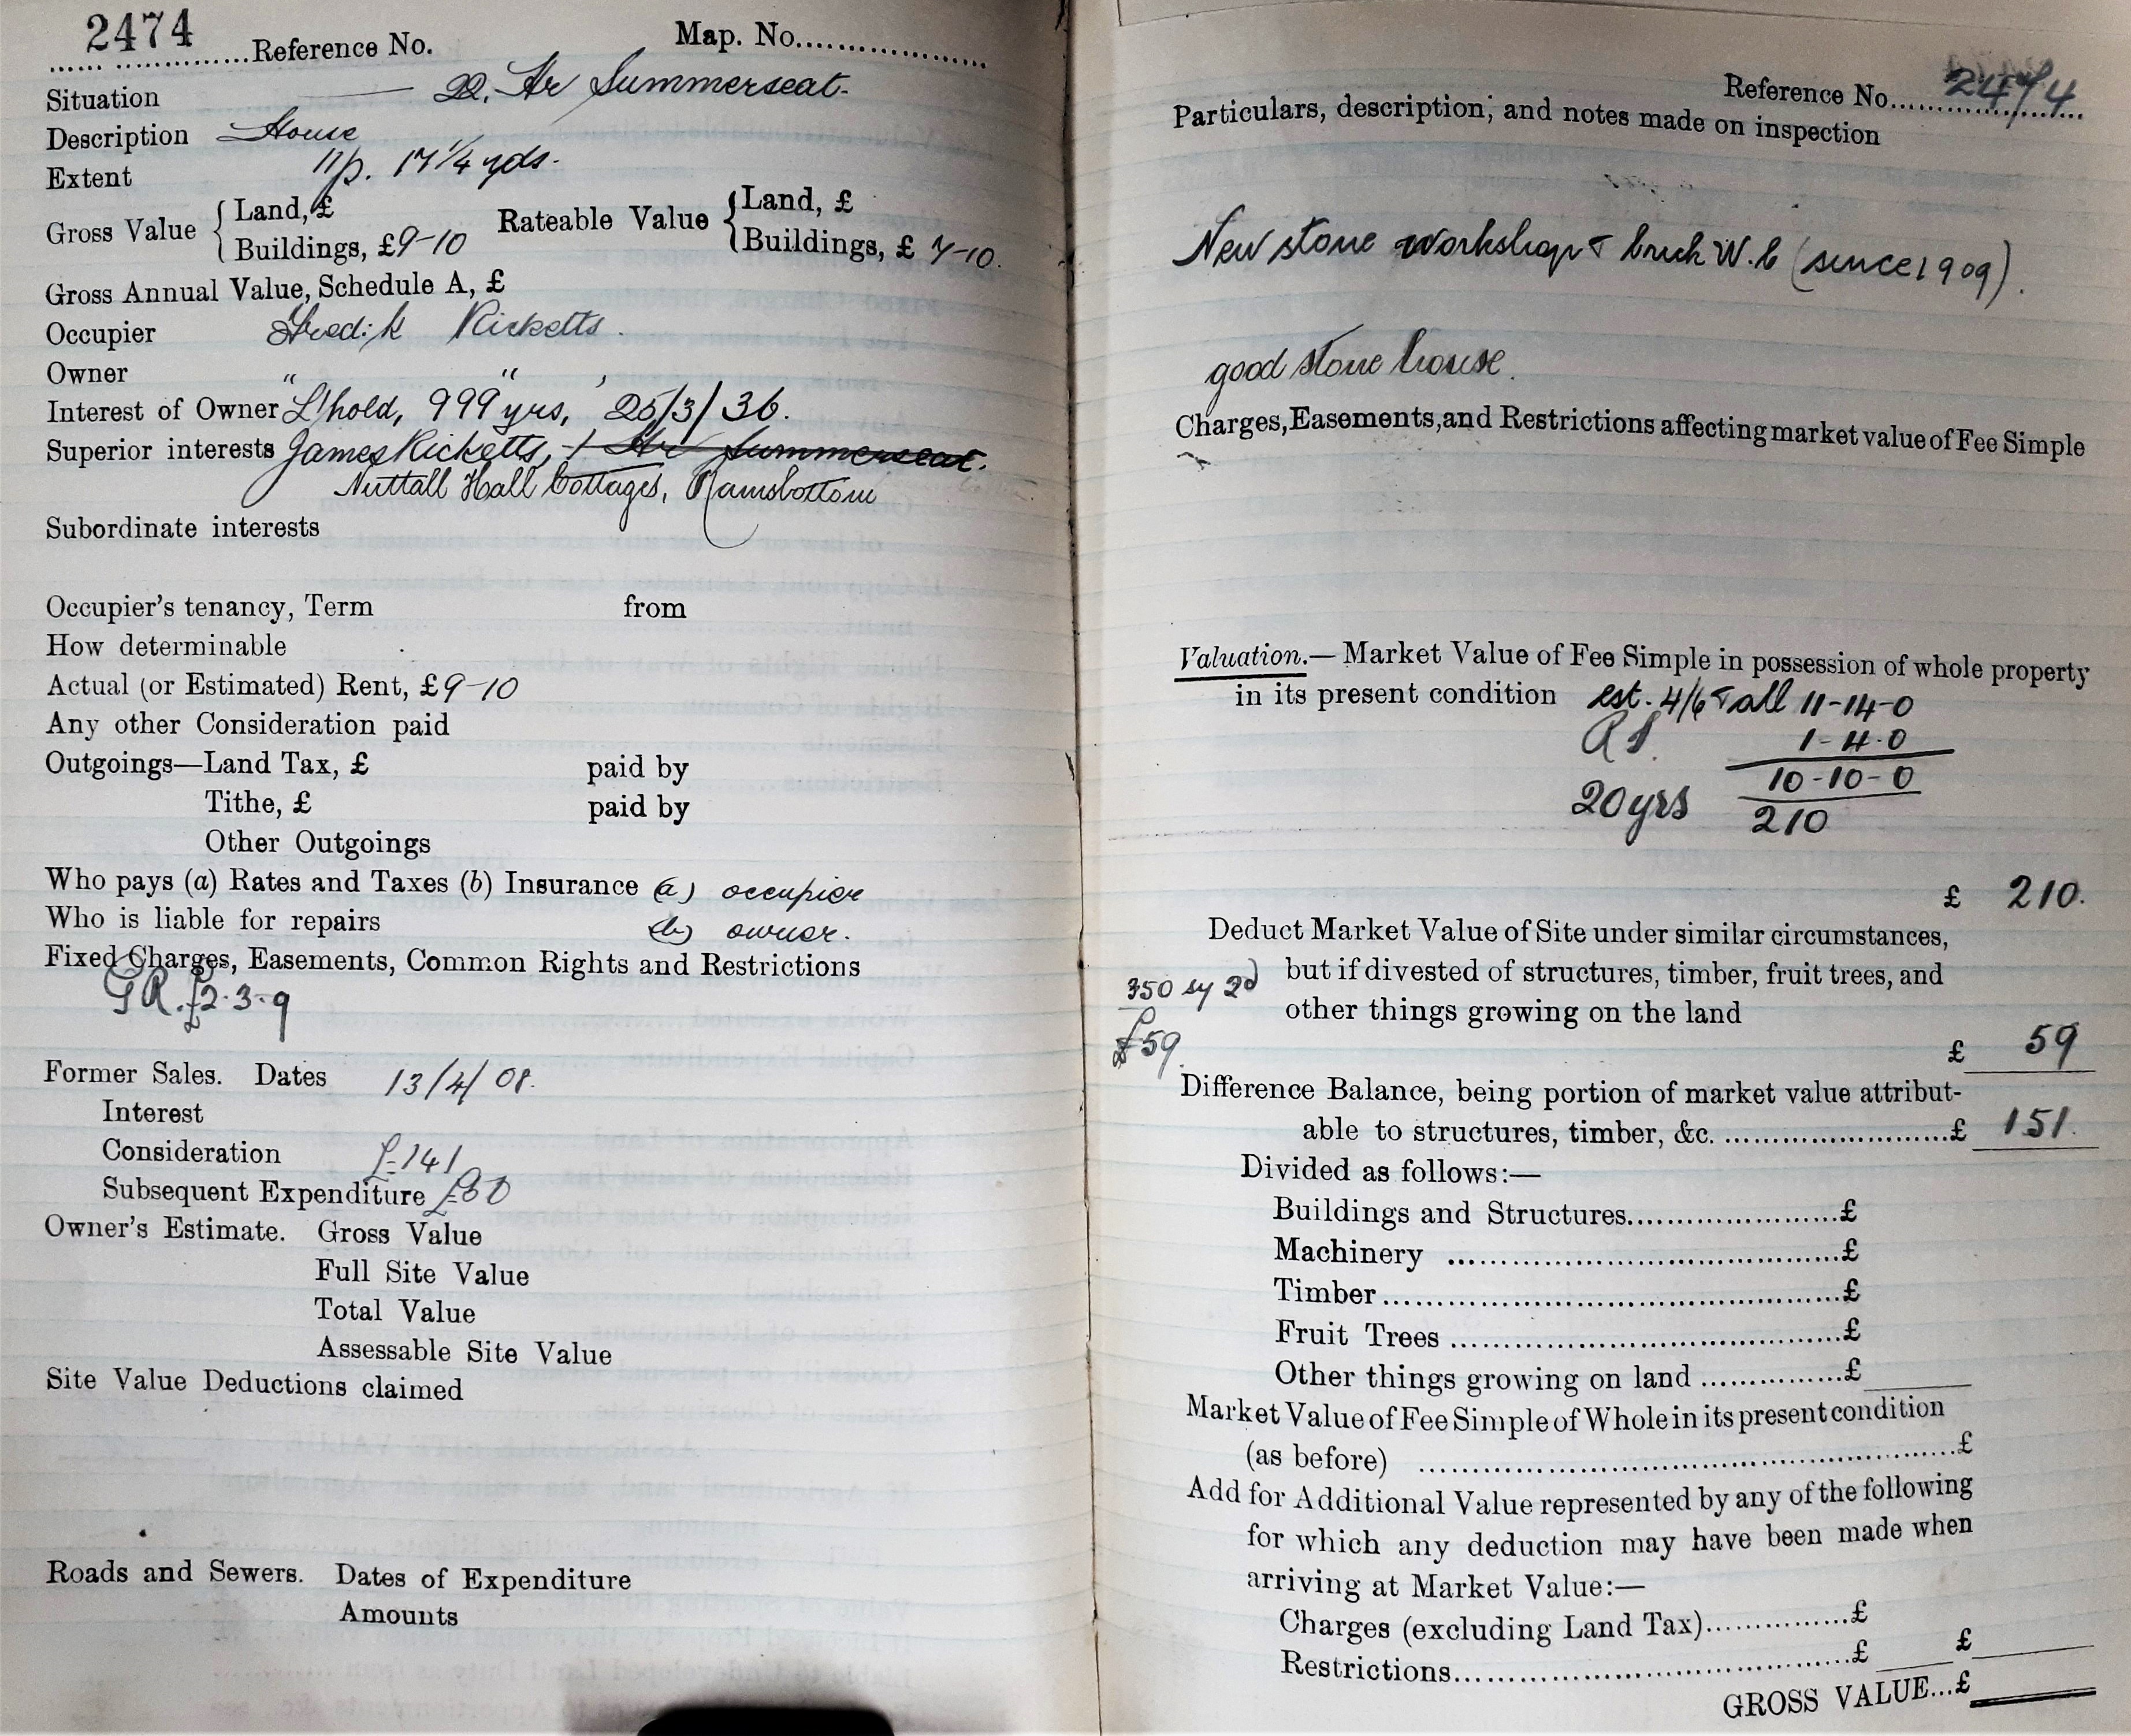 2474
......................Reference No. Map. No......................
Situation —— 22, Hr Summerseat.
Description House
Extent 11p. 17 1/4 yds.
Gross Value { Land, £ Rateable Value { Land, £
Buildings, £9-10 Buildings, £ 7-10.
Gross Annual Value, Schedule A, £
Occupier Fredik Ricketts.
Owner " "
Interest of Owner L'hold, 999 yrs, 25/3/36.
Superior interests James Ricketts, 1 Hr Summerseat.
Nuttall Hall Cottages, Ramsbottom
Subordinate interests
Occupier's tenancy, Term from
How determinable
Actual (or Estimated) Rent, £9-10
Any other Consideration paid
Outgoings—Land Tax, £ paid by
Tithe, £ paid by
Other Outgoings
Who pays (a) Rates and Taxes (b) Insurance (a) occupier
Who is liable for repairs (b) owner.
Fixed Charges, Easements, Common Rights and Restrictions
G R. £2.3.9
Former Sales. Dates 13/4/08.
Interest
Consideration £141
Subsequent Expenditure £30
Owner's Estimate. Gross Value
Full Site Value
Total Value
Assessable Site Value
Site Value Deductions claimed
Roads and Sewers. Dates of Expenditure
Amounts
Reference No. 2474
Particulars, description, and notes made on inspection
New stone workshop & brick W.C (since 1909).
good stone house.
Charges, Easements, and Restrictions affecting market value of Fee Simple
Valuation.— Market Value of Fee Simple in possession of whole property
in its present condition est. 4/6 & all 11-14-0
1-4-0
10-10-0
20 yrs 210
£ 210.
Deduct Market Value of Site under similar circumstances,
350 sy 2d but if divested of structures, timber, fruit trees, and
other things growing on the land
£59. £ 59
Difference Balance, being portion of market value attribut-
able to structures, timber, &c. ..........................£ 151.
Divided as follows:—
Buildings and Structures......................£
Machinery ......................................£
Timber..............................................£
Fruit Trees ......................................£
Other things growing on land ..............£
Market Value of Fee Simple of Whole in its present condition
(as before) ......................................................£
Add for Additional Value represented by any of the following
for which any deduction may have been made when
arriving at Market Value:—
Charges (excluding Land Tax)...............£
Restrictions......................................£ £
GROSS VALUE...£